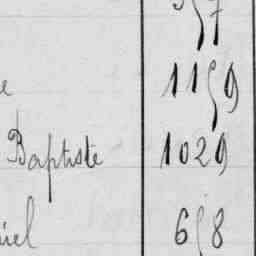 557
e 1159
Baptiste 1029
iel 658